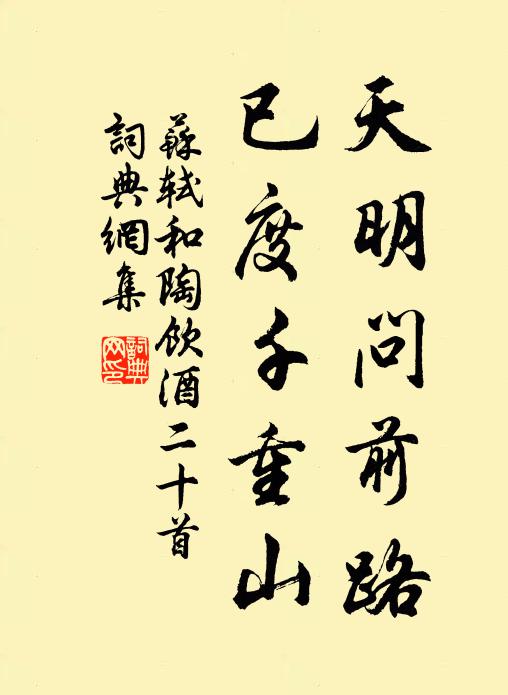 天明問前路
已度千重山
蘇軾和陶飲酒二十首
詞典網集
詞典网印